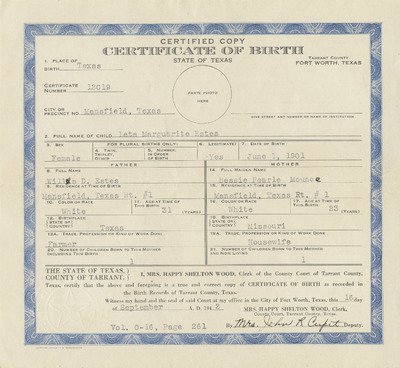 CERTIFIED COPY
CERTIFICATE OF BIRTH
STATE OF TEXAS
TARRANT COUNTY
FORT WORTH, TEXAS
1. PLACE OF BIRTH Texas
CERTIFICATE NUMBER 12019
PASTE PHOTO HERE
CITY OR PRECINCT NO Mansfield, Texas
GIVE STREET AND NUMBER OR NAME OF INSTITUTION
2. FULL NAME OF CHILD Leta Marguerite Estes
3. SEX Female
FOR PLURAL BIRTHS ONLY:
A. TWIN, TRIPLET, OTHER
B. NUMBER, IN ORDER OF BIRTH
6. LEGITIMATE? Yes
7. DATE OF BIRTH June 7, 1931
FATHER
MOTHER
8. FULL NAME D. Estes
14. FULL MAIDEN NAME Pearle
9. RESIDENCE AT TIME OF BIRTH Mansfield, Texas Rt. #1
15. RESIDENCE AT TIME OF BIRTH Mansfield, Texas Rt. #1
10. COLOR OR RACE White
11. AGE AT TIME OF THIS BIRTH 31 (YEARS)
16. COLOR OR RACE White
17. AGE AT TIME OF THIS BIRTH 23 (YEARS)
12. BIRTHPLACE (STATE OR COUNTY) Texas
18. BIRTHPLACE (STATE OR COUNTY) Missouri
13A. TRADE, PROFESSION OR KIND OF WORK DONE Farmer
19A. TRADE, PROFESSION OR KIND OF WORK DONE Housewife
20. NUMBER OF CHILDREN BORN TO THIS MOTHER INCLUDING THIS BIRTH 1
21. NUMBER OF CHILDREN BORN TO THIS MOTHER AND NOW LIVING 1
THE STATE OF TEXAS,
COUNTY OF TARRANT.
I, MRS. HAPPY SHELTON WOOD, Clerk of the County Court of Tarrant County,
Texas, certify that the above and foregoing is a true and correct copy of CERTIFICATE OF BIRTH as recorded in
the Birth Records of Tarrant County, Texas.
Witness my hand and the seal of said Court at my office in the City of Fort Worth, Texas, this 16 day
of September A. D. 194 2
MRS. HAPPY SHELTON WOOD, Clerk,
County Court, Tarrant County, Texas.
Vol. 0-16, Page 261
By Mrs. John R. Deputy.